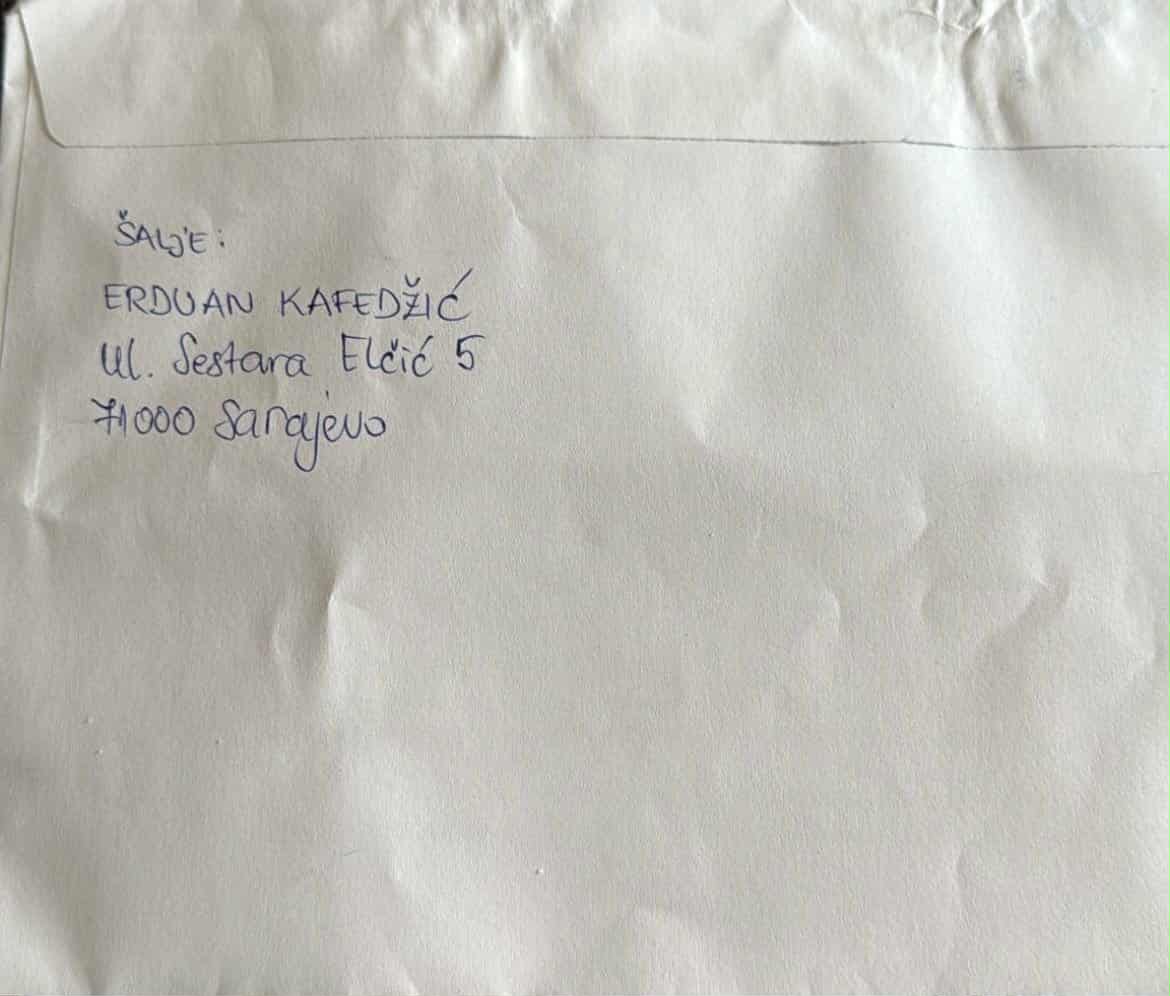 ŠALJE:
ERDUAN KAFEDŽIĆ
Ul. Sestara Elčić 5
71000 Sarajevo